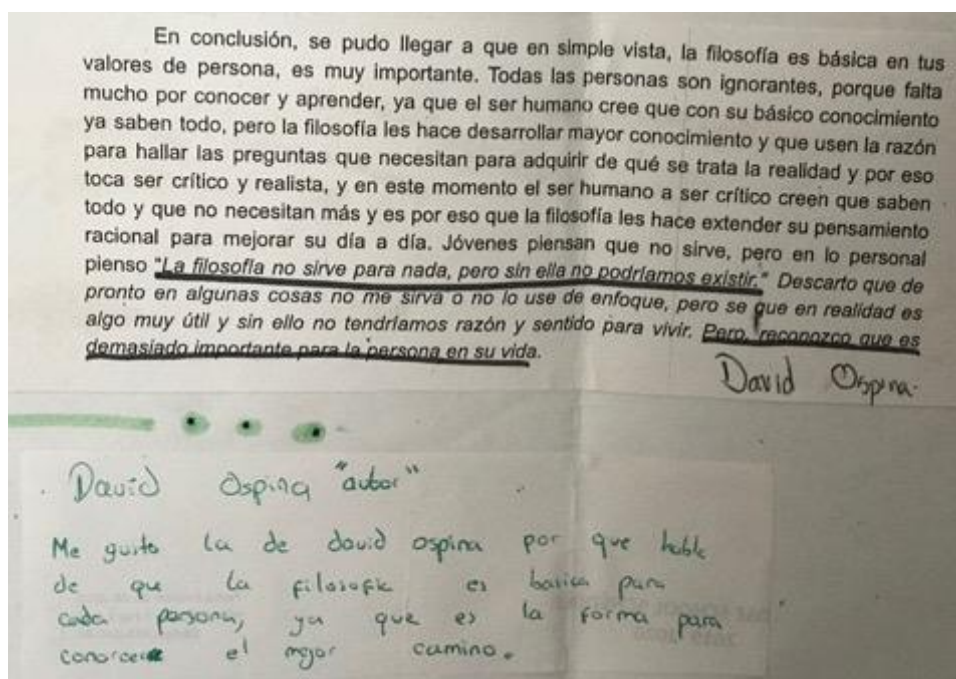 En conclusión, se pudo llegar a que en simple vista, la filosofía es básica en tus
valores de persona, es muy importante. Todas las personas son ignorantes, porque falta
mucho por conocer y aprender, ya que el ser humano cree que con su básico conocimiento
ya saben todo, pero la filosofía les hace desarrollar mayor conocimiento y que usen la razón
para hallar las preguntas que necesitan para adquirir de qué se trata la realidad y por eso
toca ser crítico y realista, y en este momento el ser humano a ser crítico creen que saben
todo y que no necesitan más y es por eso que la filosofía les hace extender su pensamiento
racional para mejorar su día a día. Jóvenes piensan que no sirve, pero en lo personal
pienso "La filosofía no sirve para nada, pero sin ella no podríamos existir." Descarto que de
pronto en algunas cosas no me sirva o no lo use de enfoque, pero se que en realidad es
algo muy útil y sin ello no tendríamos razón y sentido para vivir. Pero, reconozco que es
demasiado importante para la persona en su vida.
David Ospina.
David Ospina "autor"
Me gusto la de david ospina por que hable
de que la filosofia es basica para
cada persona, ya que es la forma para
conorcer el mejor camino.